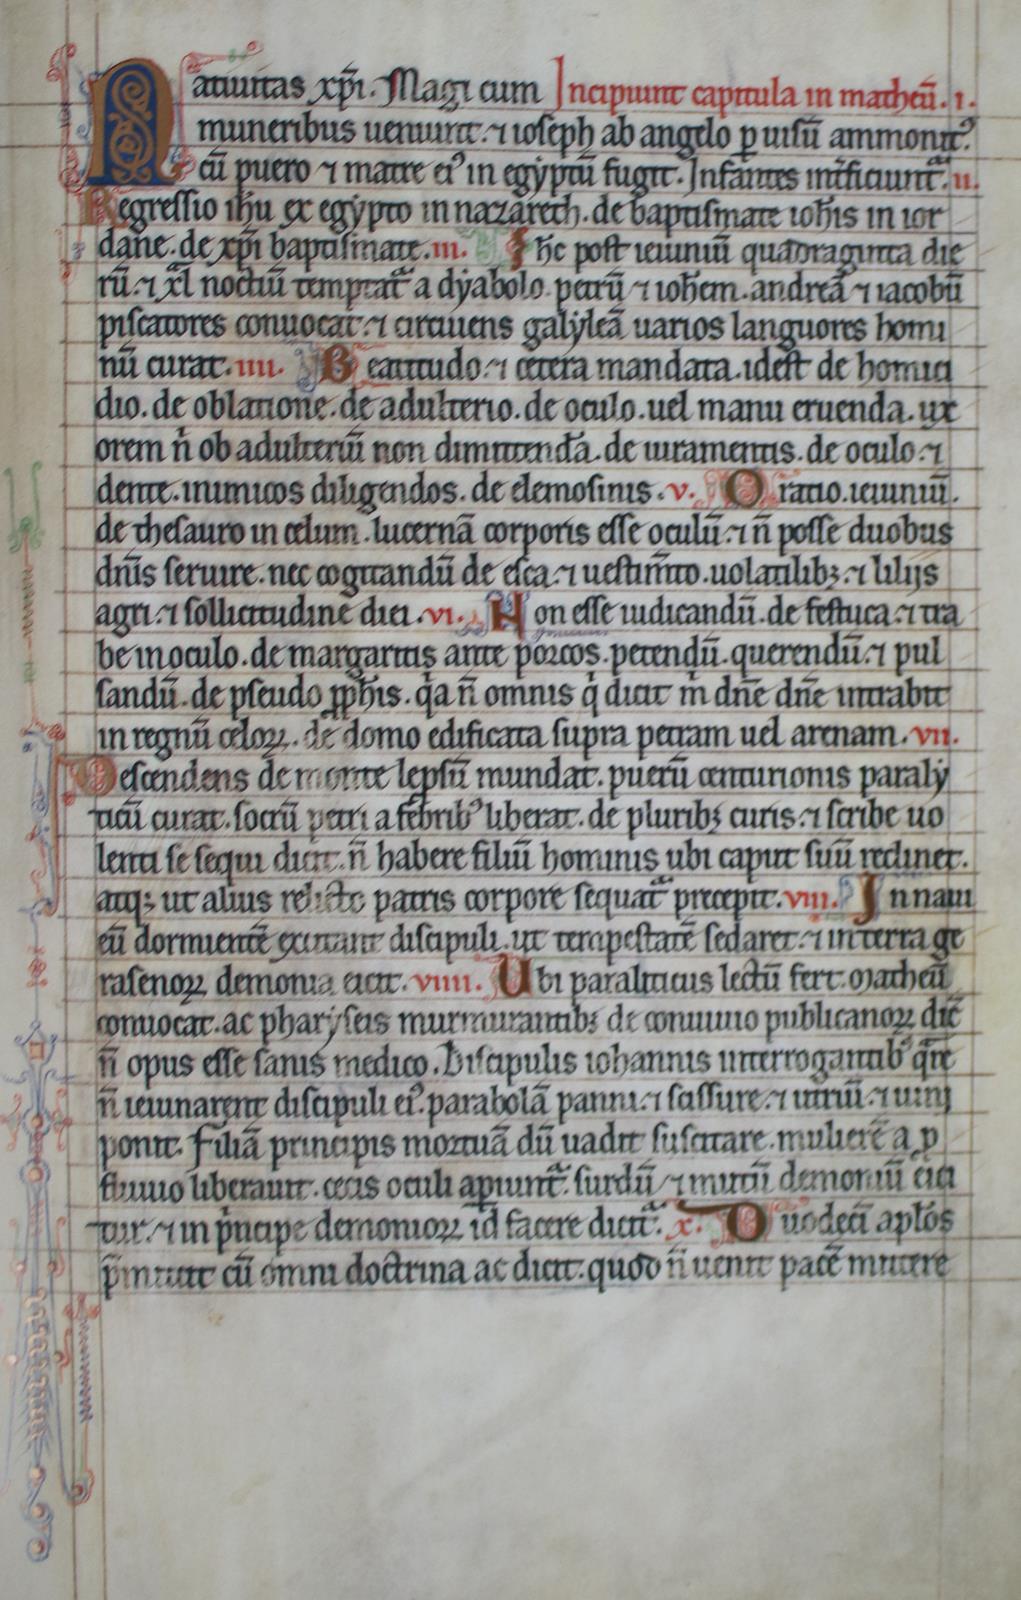 Natiuitas xp̄i. Magi cum Incipiunt capitula in matheū. i.
muneribus ueniunt. ⁊ ioseph ab angelo p uisū ammonitꝰ.
cū puero ⁊ matre eiꝰ in egẏptū fugit. Infantes int̄ficiunt̄. ii.
Regressio ih̄u ex egẏpto in nazareth. de baptismate ioh̄is in ior
dane. de xp̄i baptismate. iii. Ih̄c post ieiuniū quadraginta die
rū. ⁊ xl noctiū temptat̄ a dẏabolo. petrū ⁊ ioh̄em. andreā ⁊ iacobū
piscatores conuocat. ⁊ circuiens galẏleā uarios languores homi
nū curat. iiii. Beatitudo. ⁊ cetera mandata. idest de homici
dio. de oblatione. de adulterio. de oculo. uel manu eruenda. ux
orem n̄ ob adulteriū non dimittenda. de iuramentis. de oculo. ⁊
dente. inimicos diligendos. de elemosinis. v. Oratio. ieiuniū.
de thesauro in celum. lucernā corporis esse oculū. ⁊ n̄ posse duobus
dn̄is seruire. nec cogitandū de esca. ⁊ uestim̄to. uolatilibꝫ. ⁊ lilijs
agri. ⁊ sollicitudine diei. vi. Non esse iudicandū. de festuca. ⁊ tra
be in oculo. de margaritis ante porcos. petendū. querendū. ⁊ pul
sandū. de pseudo pph̄is. q̇a n̄ omnis q̇ dicit m̄ dn̄e dn̄e intrabit
in regnū celoꝝ. de domo edificata supra petram uel arenam. vii.
Descendens de monte lepsū mundat. puerū centurionis paralẏ
ticū curat. socrū petri a febribꝰ liberat. de pluribꝫ curis. ⁊ scribe uo
lenti se sequi dicit. n̄ habere filiū hominis ubi caput suū reclinet.
atqꝫ ut alius relicto patris corpore sequat̄ precepit. viii. In naui
eū dormientē excitant discipuli. ut tempestatē sedaret. ⁊ in terra ge
rasenoꝝ demonia eicit. viiii. Ubi paraliticus lectū fert. matheū
conuocat. ac pharẏseis murmurantibꝫ de conuiuio publicanoꝝ dic̄
n̄ opus esse sanis medico. Discipulis iohannis interrogantibꝰ q̄re
n̄ ieiunarent discipuli eiꝰ. parabolā panni. ⁊ scissure. ⁊ utriū. ⁊ uini
ponit. Filiā principis mortuā dū uadit suscitare. mulierē a p
fluuio liberauit. cecis oculi apiunt̄. surdū ⁊ mutū demoniū eici
tur. ⁊ in p̄ncipe demonioꝝ id facere dicit̄. x. Duodeci apl̄os
p̄mittit cū omni doctrina ac dicit. quod n̄ uenit pacē mittere